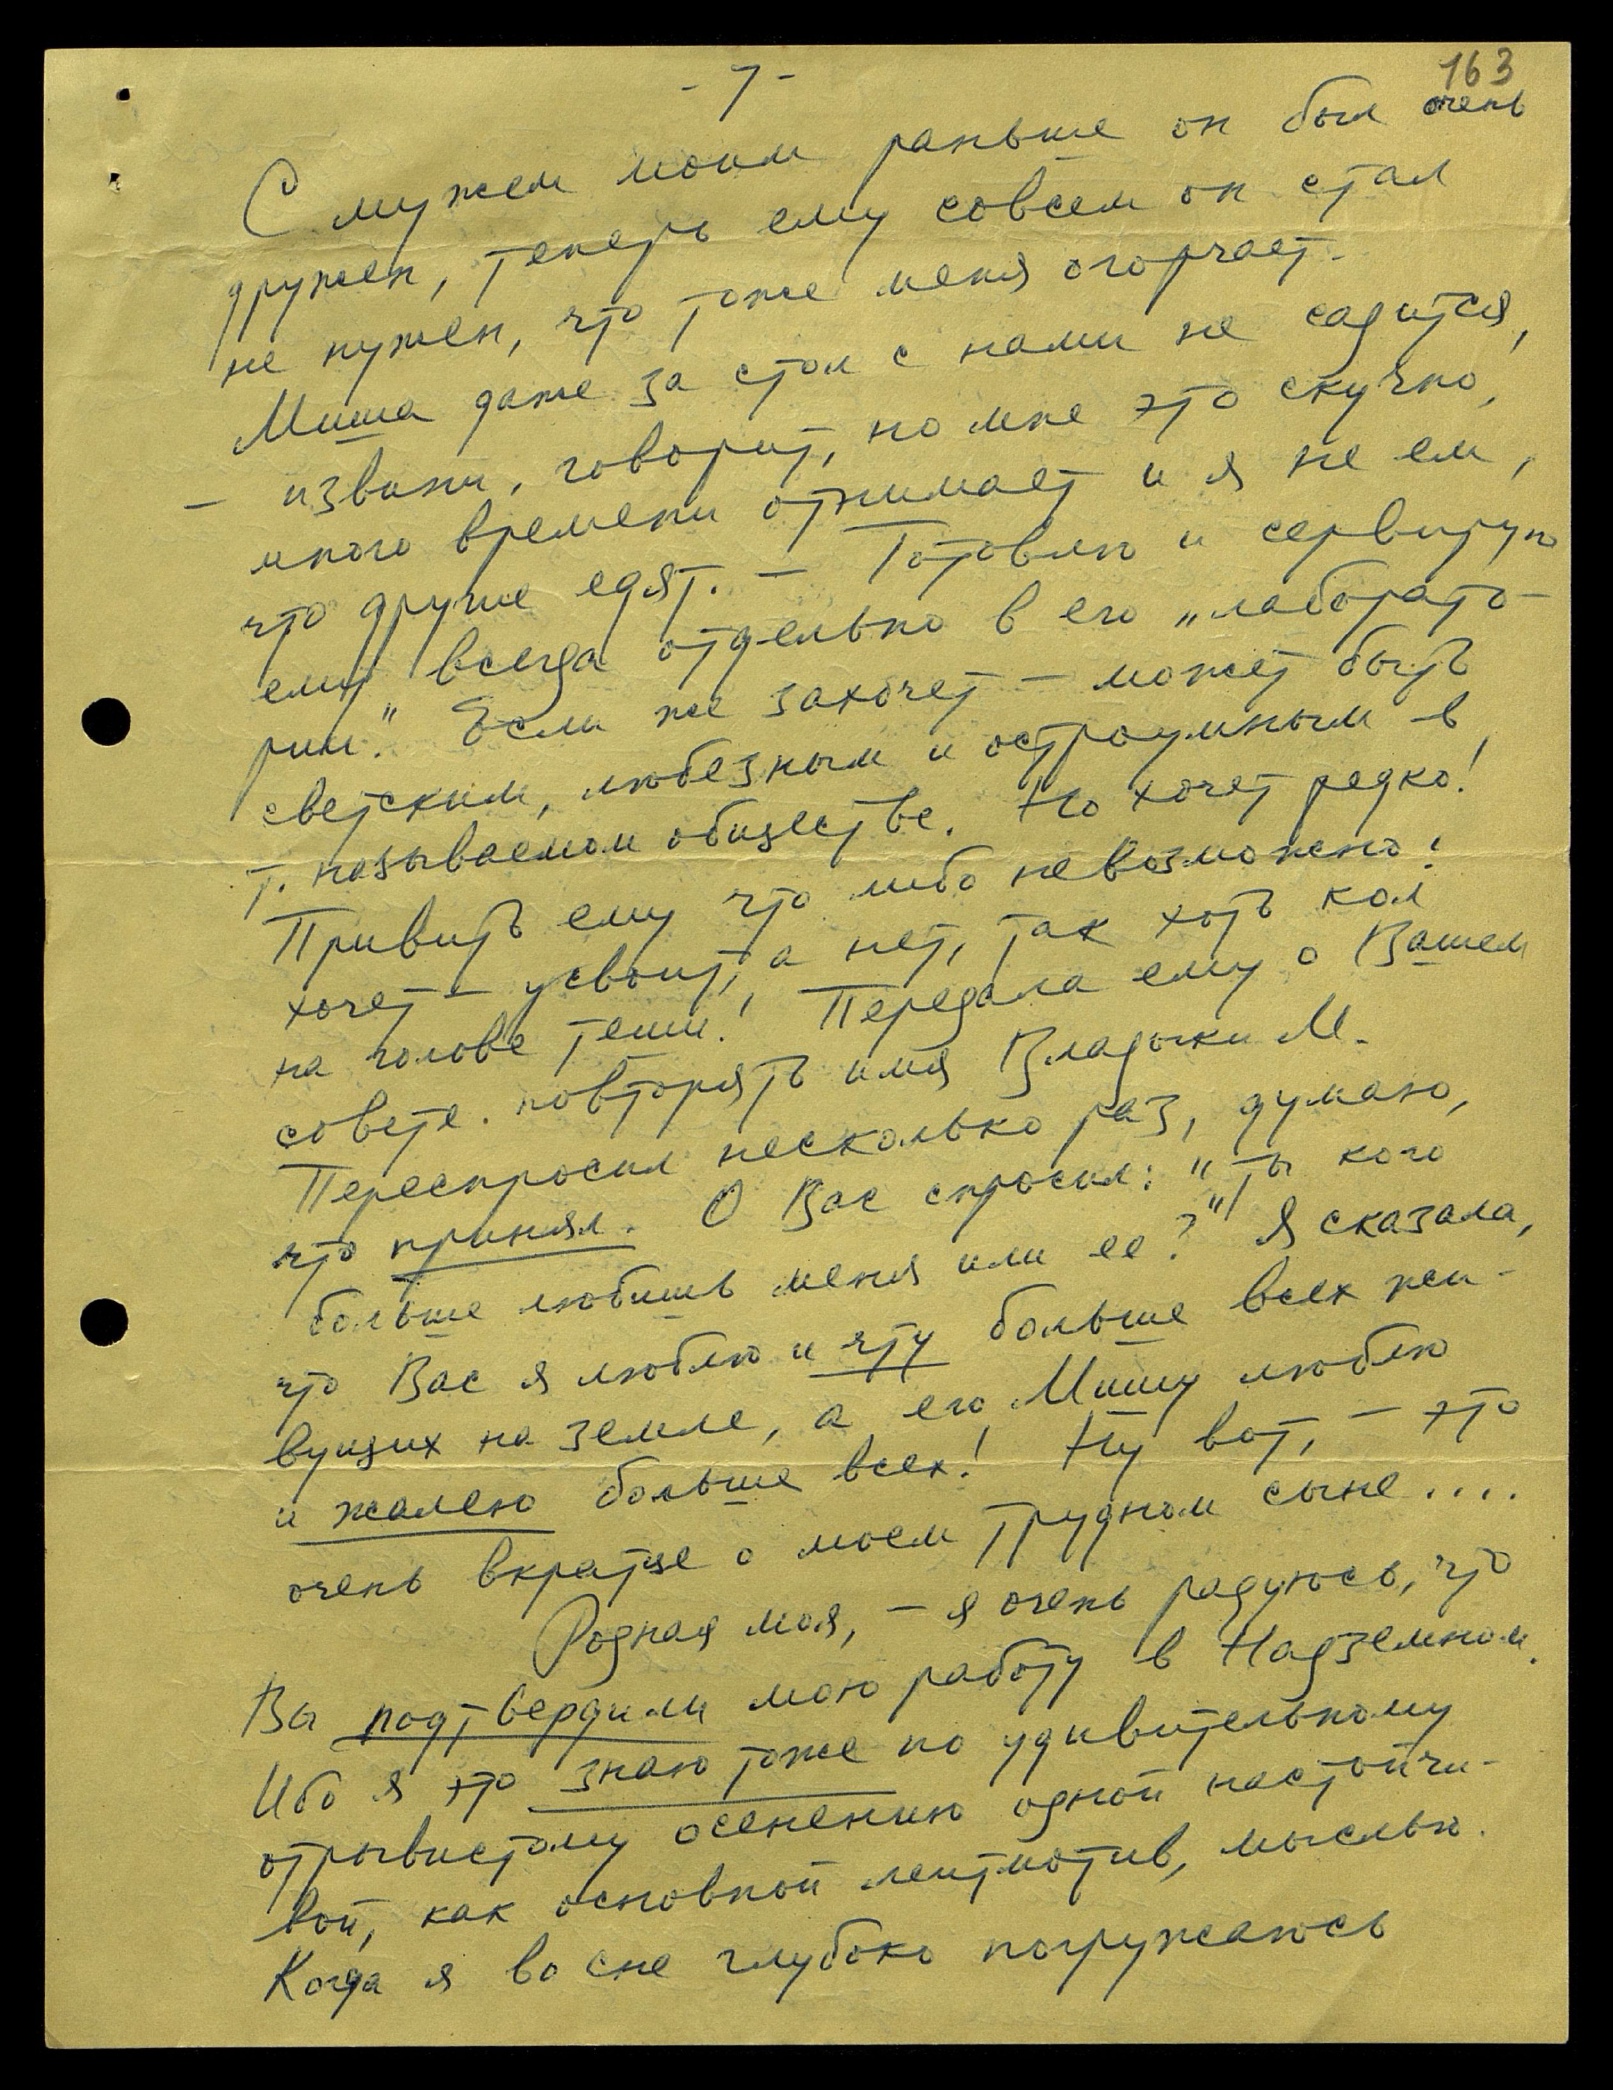 163
- 7 -
С мужем моим раньше он был очень
дружен, теперь ему совсем он стал
не нужен, что тоже меня огорчает.
Миша даже за стол с нами не садится,
– извини, говорит, но мне это скучно,
много времени отнимает и я не ем,
что другие едят. – Готовлю и сервирую
ему всегда отдельно в его „лаборато-
рии". Если же захочет – может быть
светским, любезным и остроумным в
т. называемом обществе. Но хочет редко!
Привить ему что либо невозможно:
хочет – усвоит, а нет, так хоть кол
на голове теши! Передала ему о Вашем
совете повторять имя Владыки М.
Переспросил несколько раз, думаю,
что принял. О Вас спросил: "Ты кого
больше любишь меня или ее?" Я сказала,
что Вас я люблю и чту больше всех жи-
вущих на земле, а его Мишу люблю
и жалею больше всех! Ну вот, – это
очень вкратце о моем трудном сыне....
Родная моя, – я очень радуюсь, что
Вы подтвердили мою работу в Надземном.
Ибо я это знаю тоже по удивительному
отрывистому осенению одной настойчи-
вой, как основной лейтмотив, мыслью.
Когда я во сне глубоко погружаюсь